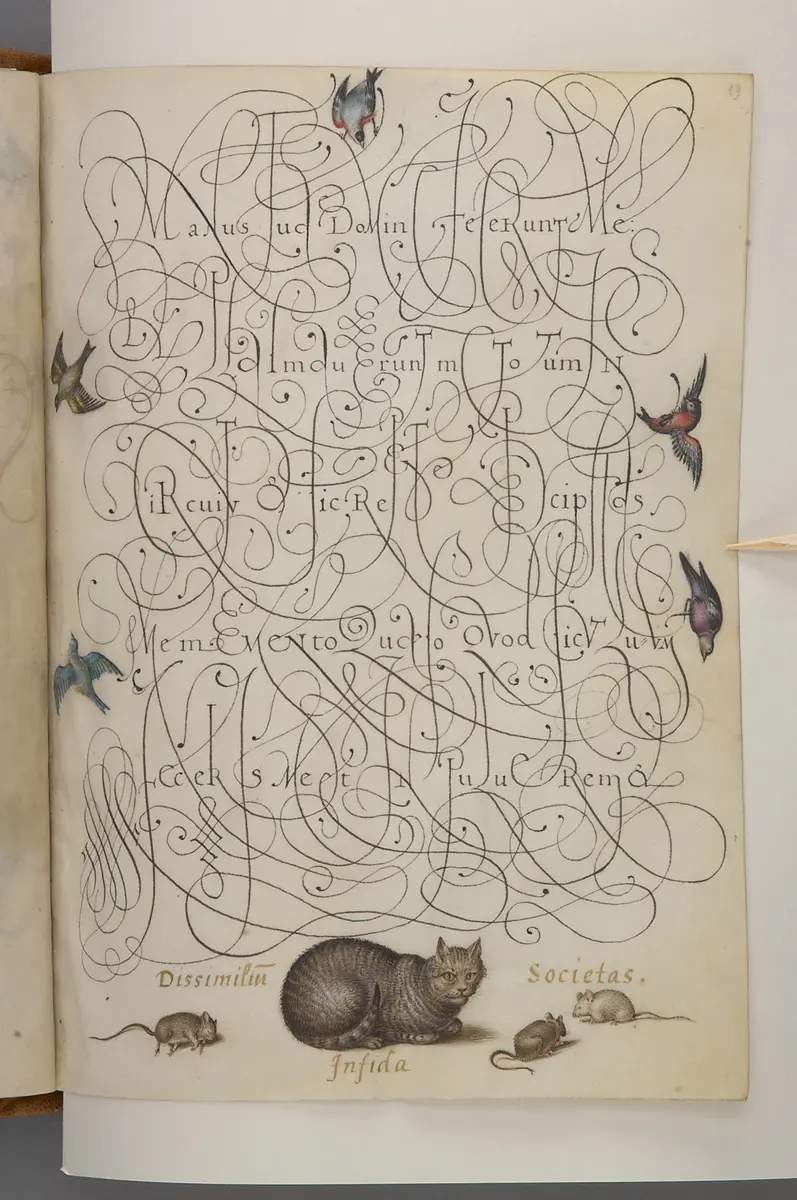 19
Manus Tuae Domine Fecerunt Me:
Et Plasmauerunt me Totum IN
CiRcuitu & Sic: RepeNte PrecipiTas
Me MemENto Quaeso Quod Sicut Lutum
FeceRis Me et IN PulueRem &
Dissimiliū Societas.
Infida